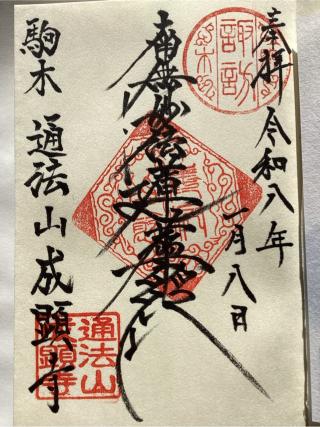 奉拝
令和八年
一月八日
諏訪
南無妙法蓮華経
駒木 通法山成顕寺
通法山
成顕寺